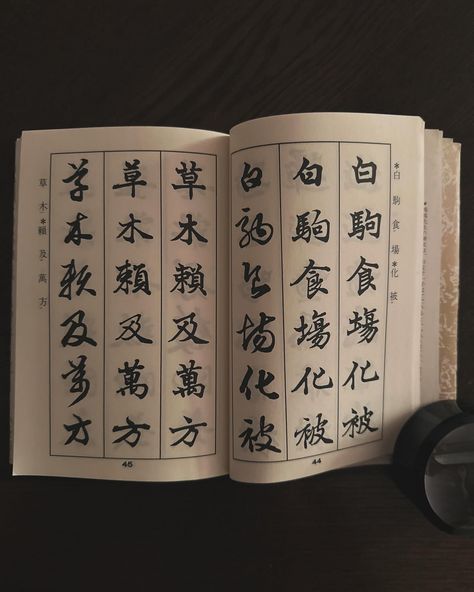 *白駒食場*化被
白駒食場化被
白駒食場化被
白駒食場化被
44
草木賴及萬方
草木賴及萬方
草木賴及萬方
草木*賴及萬方
45